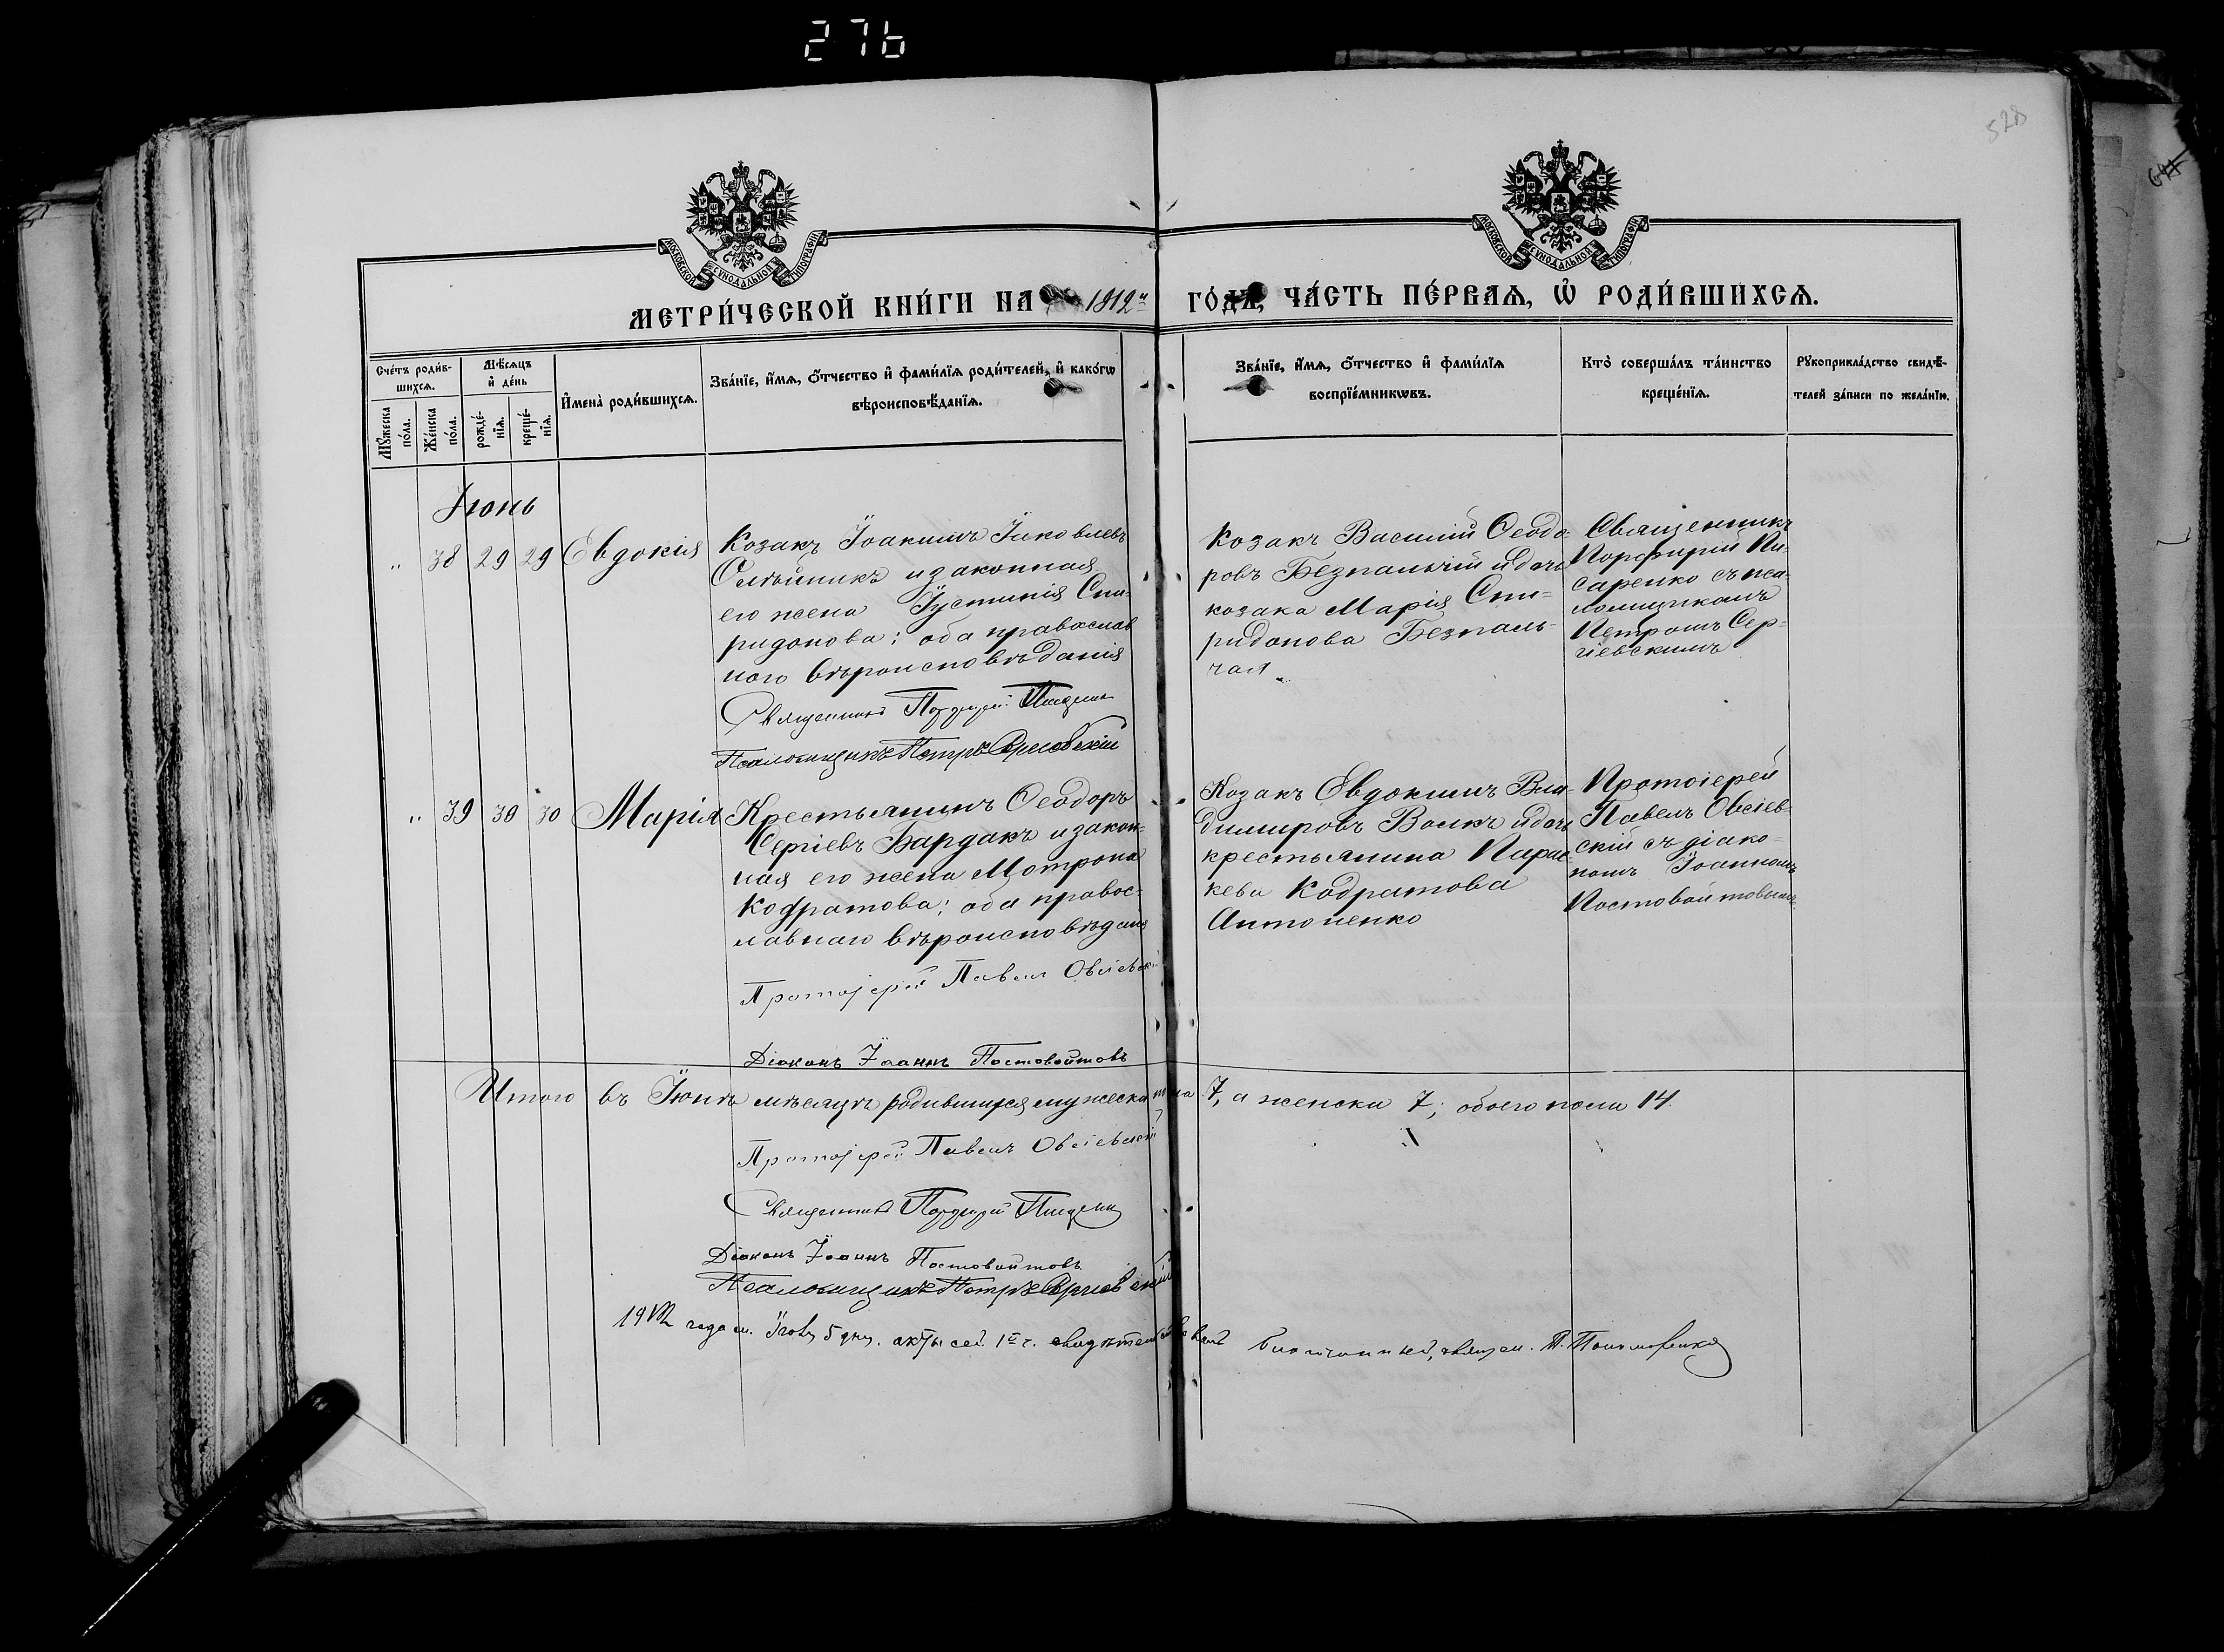 276
528
МОСКОВСКОЙ СУНОДАЛЬНОЙ ТИПОГРАФІИ
МОСКОВСКОЙ СУНОДАЛЬНОЙ ТИПОГРАФІИ
МЕТРИ́ЧЕСКОЙ КНИ́ГИ НА 1912й ГО́ДЪ, ЧА́СТЬ ПЕ́РВАЯ, Ѡ РОДИ́ВШИХСЯ.
Сче́тъ роди́в-
шихся.
Мꙋ́жеска по́ла.
Же́нска по́ла.
Мѣ́сяцъ
и де́нь
рожде́-
нїя.
креще́-
нїя.
Имена̀ роди́вшихся.
Зва́нїе, и́мя, о́тчество и фами́лїя роди́телей, и како́гѡ
вѣроисповѣ́данїя.
Зва́нїе, и́мя, о́тчество и фами́лїя
воспрїе́мникѡвъ.
Кто̀ соверша́лъ та́инство
креще́нїя.
Рꙋкоприкла́дство свидѣ́-
телей за́писи по жела́нїю.
Іюнь
" 38 29 29 Евдокія
Козакъ Іоакимъ Іаковлевъ
Олѣйникъ и законная
его жена Іустинія Спи-
ридонова; оба православ
ного вѣроисповѣданія
Священникъ Порфирій Писаренко
Псаломщикъ Петръ Сергіевскій
Козакъ Василій Ѳеодо-
ровъ Безпальчій и дочь
козака Марія Спи-
ридонова Безпаль-
чая.
Священникъ
Порфирій Пи-
саренко съ пса-
ломщикомъ
Петромъ Сер-
гіевскимъ
" 39 30 30 Марія
Крестьянинъ Ѳеодоръ
Сергіевъ Бардакъ и закон-
ная его жена Мотрона
Кодратова; оба правос-
лавнаго вѣроисповѣданія
Протоіерей Павелъ Овсіевскій
Діаконъ Іоаннъ Постовойтовъ
Козакъ Евдокимъ Вла-
димировъ Волкъ и дочь
крестьянина Парас-
кева Кодратова
Антоненко
Протоіерей
Павелъ Овсіев-
скій съ діако-
номъ Іоанномъ
Постовойтовымъ
Итого въ Іюнѣ мѣсяцѣ родившихся мужеска пола 7, а женска 7; обоего пола 14.
Протоіерей Павелъ Овсіевскій
Священникъ Порфирій Писаренко
Діаконъ Іоаннъ Постовойтовъ
Псаломщикъ Петръ Сергіевскій
года м. 5 дня. акты сей 1й ч. свидѣтельствовалъ Благочинный, свящ.